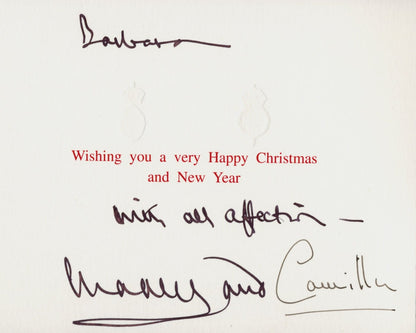 Barbara
Wishing you a very Happy Christmas
and New Year
with all affection —
Charles and Camilla